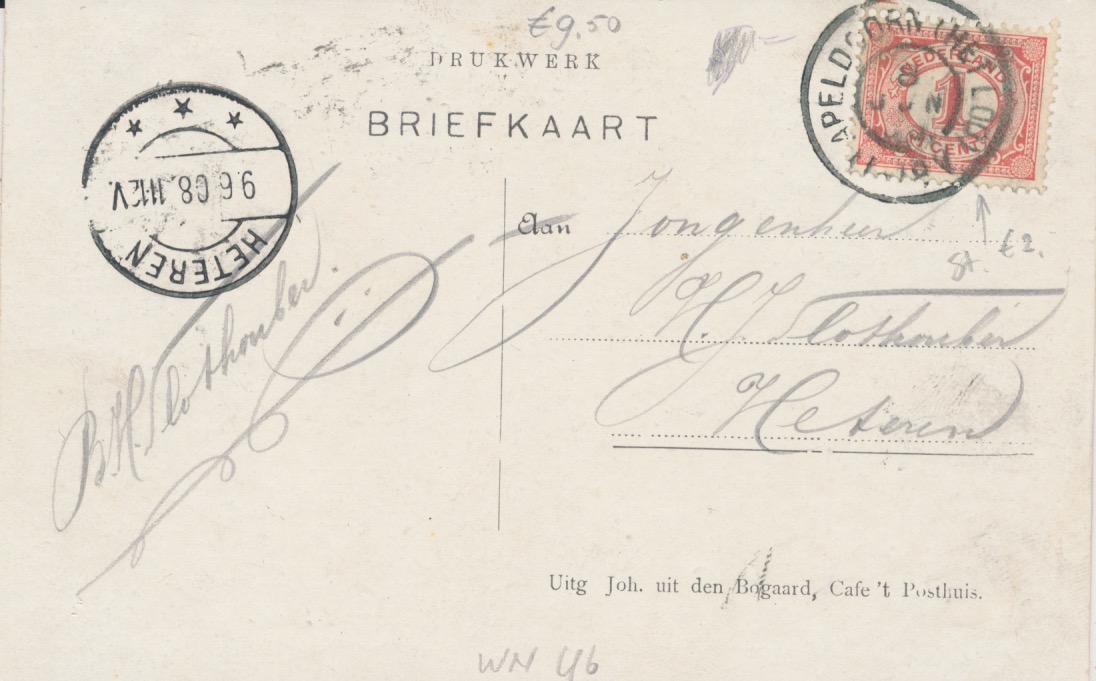 €9.50
DRUKWERK
BRIEFKAART
APELDOORN (HET LOO)
NEDERLAND
1
CENT
HETEREN
9 6 08. 11-12V.
Aan Jongenheer
H. J. Slothouber
Heteren
st. €2.
B. H. Slothouber.
Uitg Joh. uit den Bogaard, Cafe 't Posthuis.
WN 46